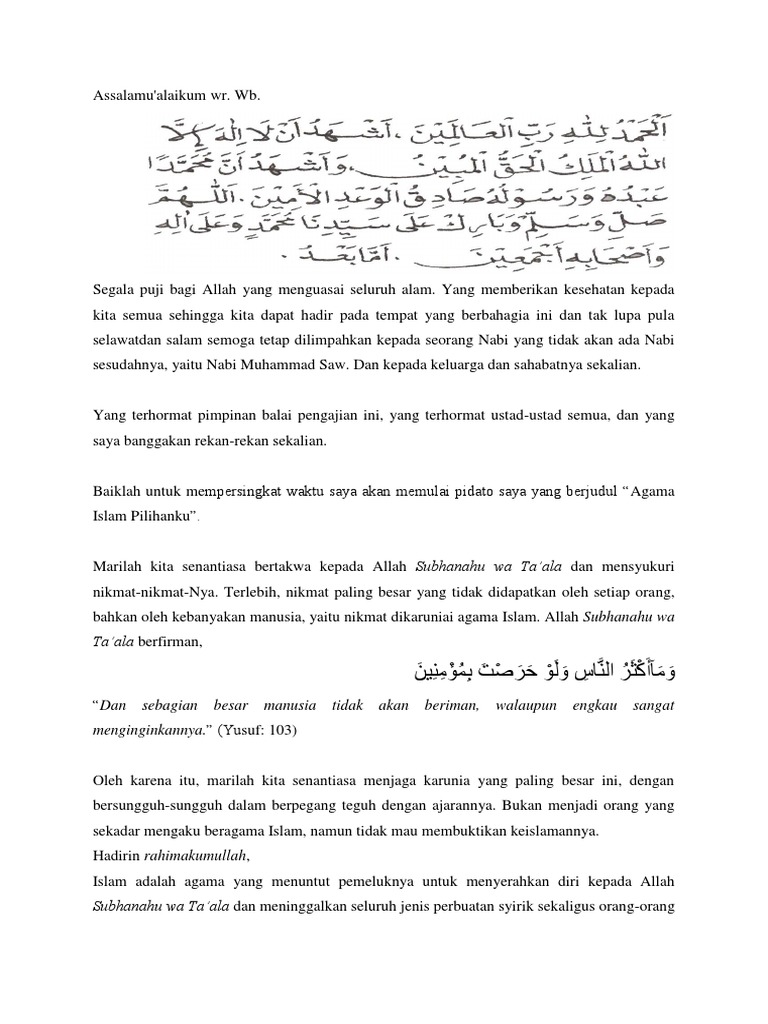 Assalamu'alaikum wr. Wb.
اَلْحَمْدُ لِلّٰهِ رَبِّ الْعَالَمِيْنَ ، اَشْهَدُ اَنْ لَا اِلٰهَ اِلَّا
اللهُ الْمَلِكُ الْحَقُّ الْمُبِيْنُ ، وَاَشْهَدُ اَنَّ مُحَمَّدًا
عَبْدُهُ وَرَسُوْلُهُ صَادِقُ الْوَعْدِ الْاَمِيْنَ . اَللّٰهُمَّ
صَلِّ وَسَلِّمْ وَبَارِكْ عَلَى سَيِّدِنَا مُحَمَّدٍ وَعَلَى اٰلِهِ
وَاَصْحَابِهِ اَجْمَعِيْنَ . اَمَّا بَعْدُ .
Segala puji bagi Allah yang menguasai seluruh alam. Yang memberikan kesehatan kepada
kita semua sehingga kita dapat hadir pada tempat yang berbahagia ini dan tak lupa pula
selawatdan salam semoga tetap dilimpahkan kepada seorang Nabi yang tidak akan ada Nabi
sesudahnya, yaitu Nabi Muhammad Saw. Dan kepada keluarga dan sahabatnya sekalian.
Yang terhormat pimpinan balai pengajian ini, yang terhormat ustad-ustad semua, dan yang
saya banggakan rekan-rekan sekalian.
Baiklah untuk mempersingkat waktu saya akan memulai pidato saya yang berjudul “Agama
Islam Pilihanku”.
Marilah kita senantiasa bertakwa kepada Allah Subhanahu wa Ta’ala dan mensyukuri
nikmat-nikmat-Nya. Terlebih, nikmat paling besar yang tidak didapatkan oleh setiap orang,
bahkan oleh kebanyakan manusia, yaitu nikmat dikaruniai agama Islam. Allah Subhanahu wa
Ta’ala berfirman,
وَمَآأَكْثَرُ النَّاسِ وَلَوْ حَرَصْتَ بِمُؤْمِنِينَ
“Dan sebagian besar manusia tidak akan beriman, walaupun engkau sangat
menginginkannya.” (Yusuf: 103)
Oleh karena itu, marilah kita senantiasa menjaga karunia yang paling besar ini, dengan
bersungguh-sungguh dalam berpegang teguh dengan ajarannya. Bukan menjadi orang yang
sekadar mengaku beragama Islam, namun tidak mau membuktikan keislamannya.
Hadirin rahimakumullah,
Islam adalah agama yang menuntut pemeluknya untuk menyerahkan diri kepada Allah
Subhanahu wa Ta’ala dan meninggalkan seluruh jenis perbuatan syirik sekaligus orang-orang